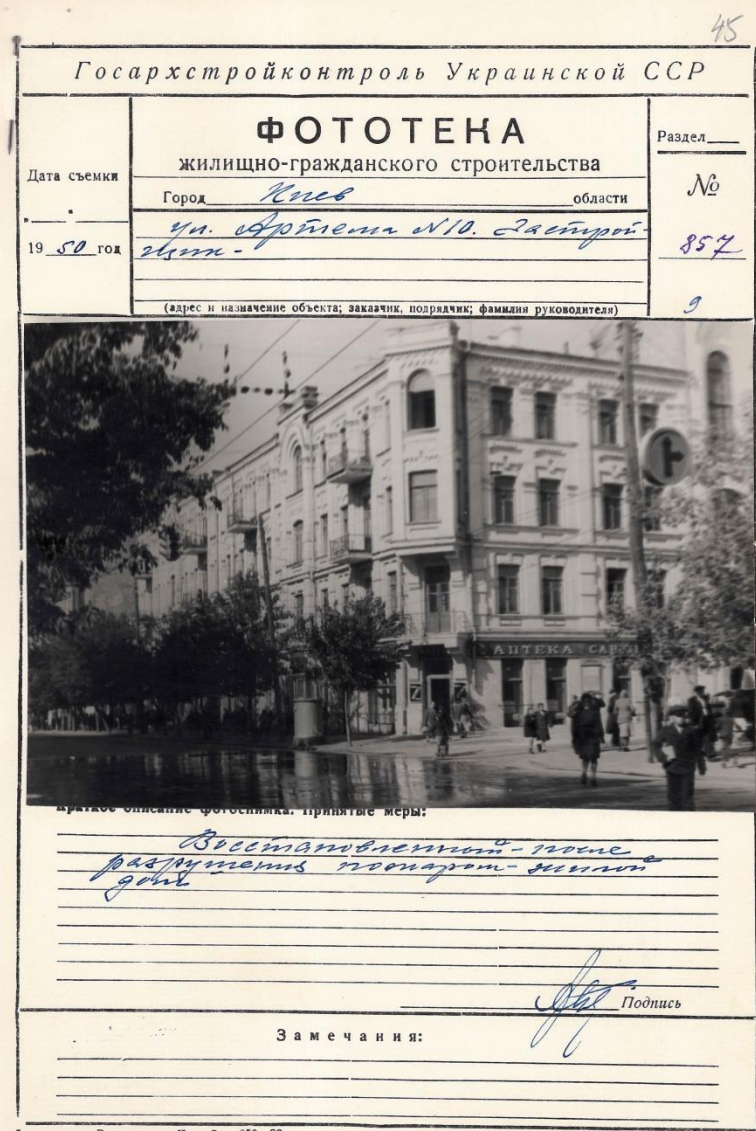 45
Госархстройконтроль Украинской ССР
ФОТОТЕКА
жилищно-гражданского строительства
Раздел
Дата съемки
Город Киев области
№
ул. Артема N 10. Застрой-
щик -
19 50 год
857
(адрес и назначение объекта; заказчик, подрядчик; фамилия руководителя)
9
АПТЕКА
Краткое описание фотоснимка. Принятые меры:
Восстановленный - после
разрушения пожаром - жилой
дом
Подпись
Замечания: